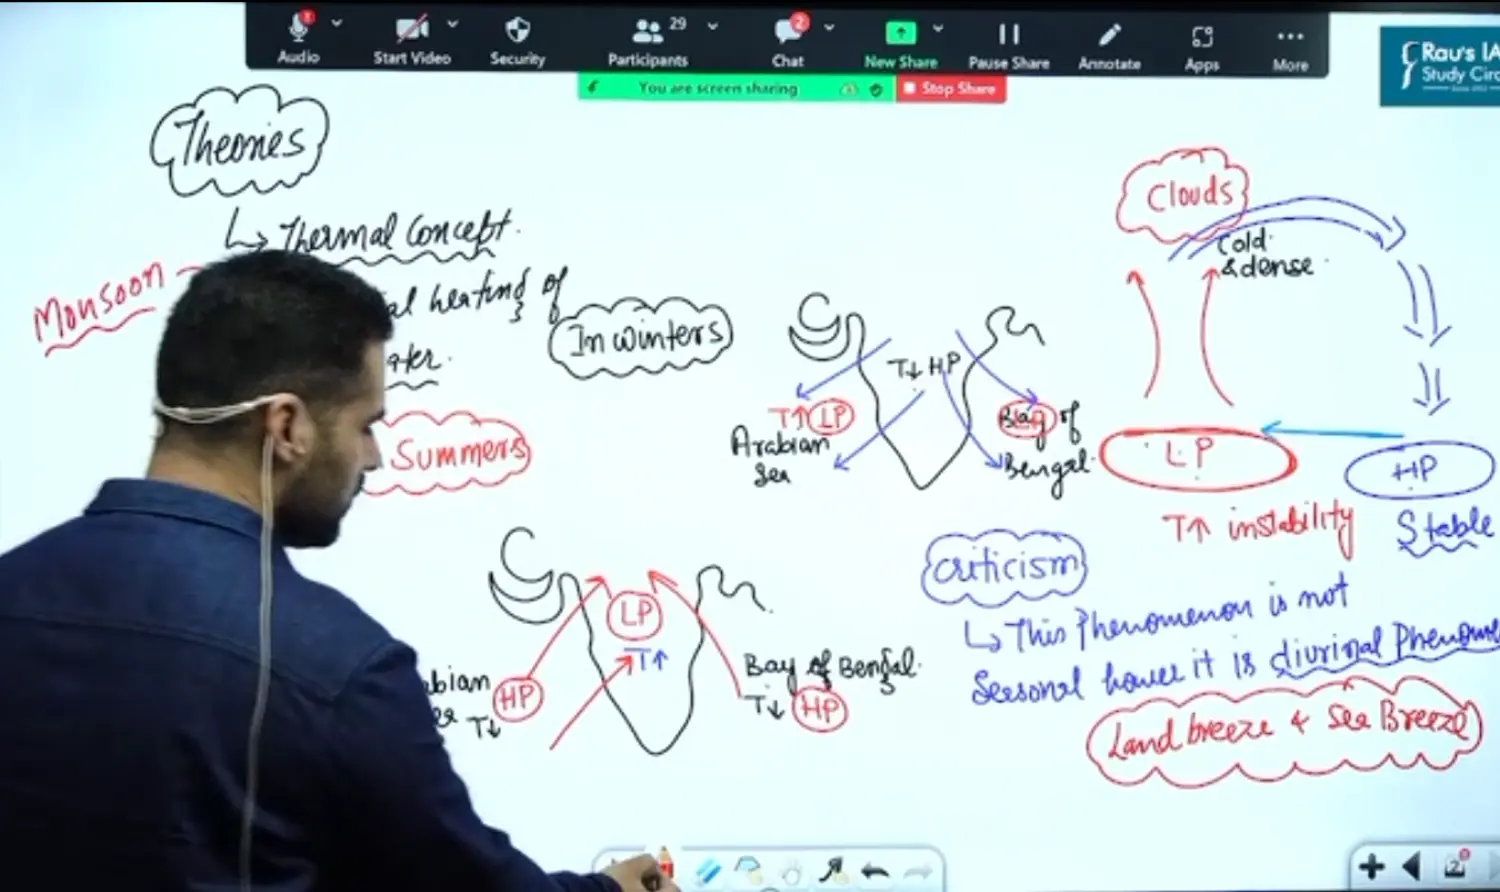 Audio
Start Video
Security
Participants 29
Chat 2
New Share
Pause Share
Annotate
Apps
More
You are screen sharing
Stop Share
Rau's IA
Study Circ
Theories
Thermal Concept.
Monsoon
al heating of
ater.
In winters
Summers
Clouds
Cold
& dense
T↓ HP
T↑ LP
Arabian
Sea
Bay of
Bengal
LP
HP
T↑ instability
Stable
LP
T↑
bian
HP
T↓
Bay of Bengal
T↓ HP
Criticism
This Phenomenon is not
Seasonal it is diurinal Phenome
Land breeze & Sea Breeze
2